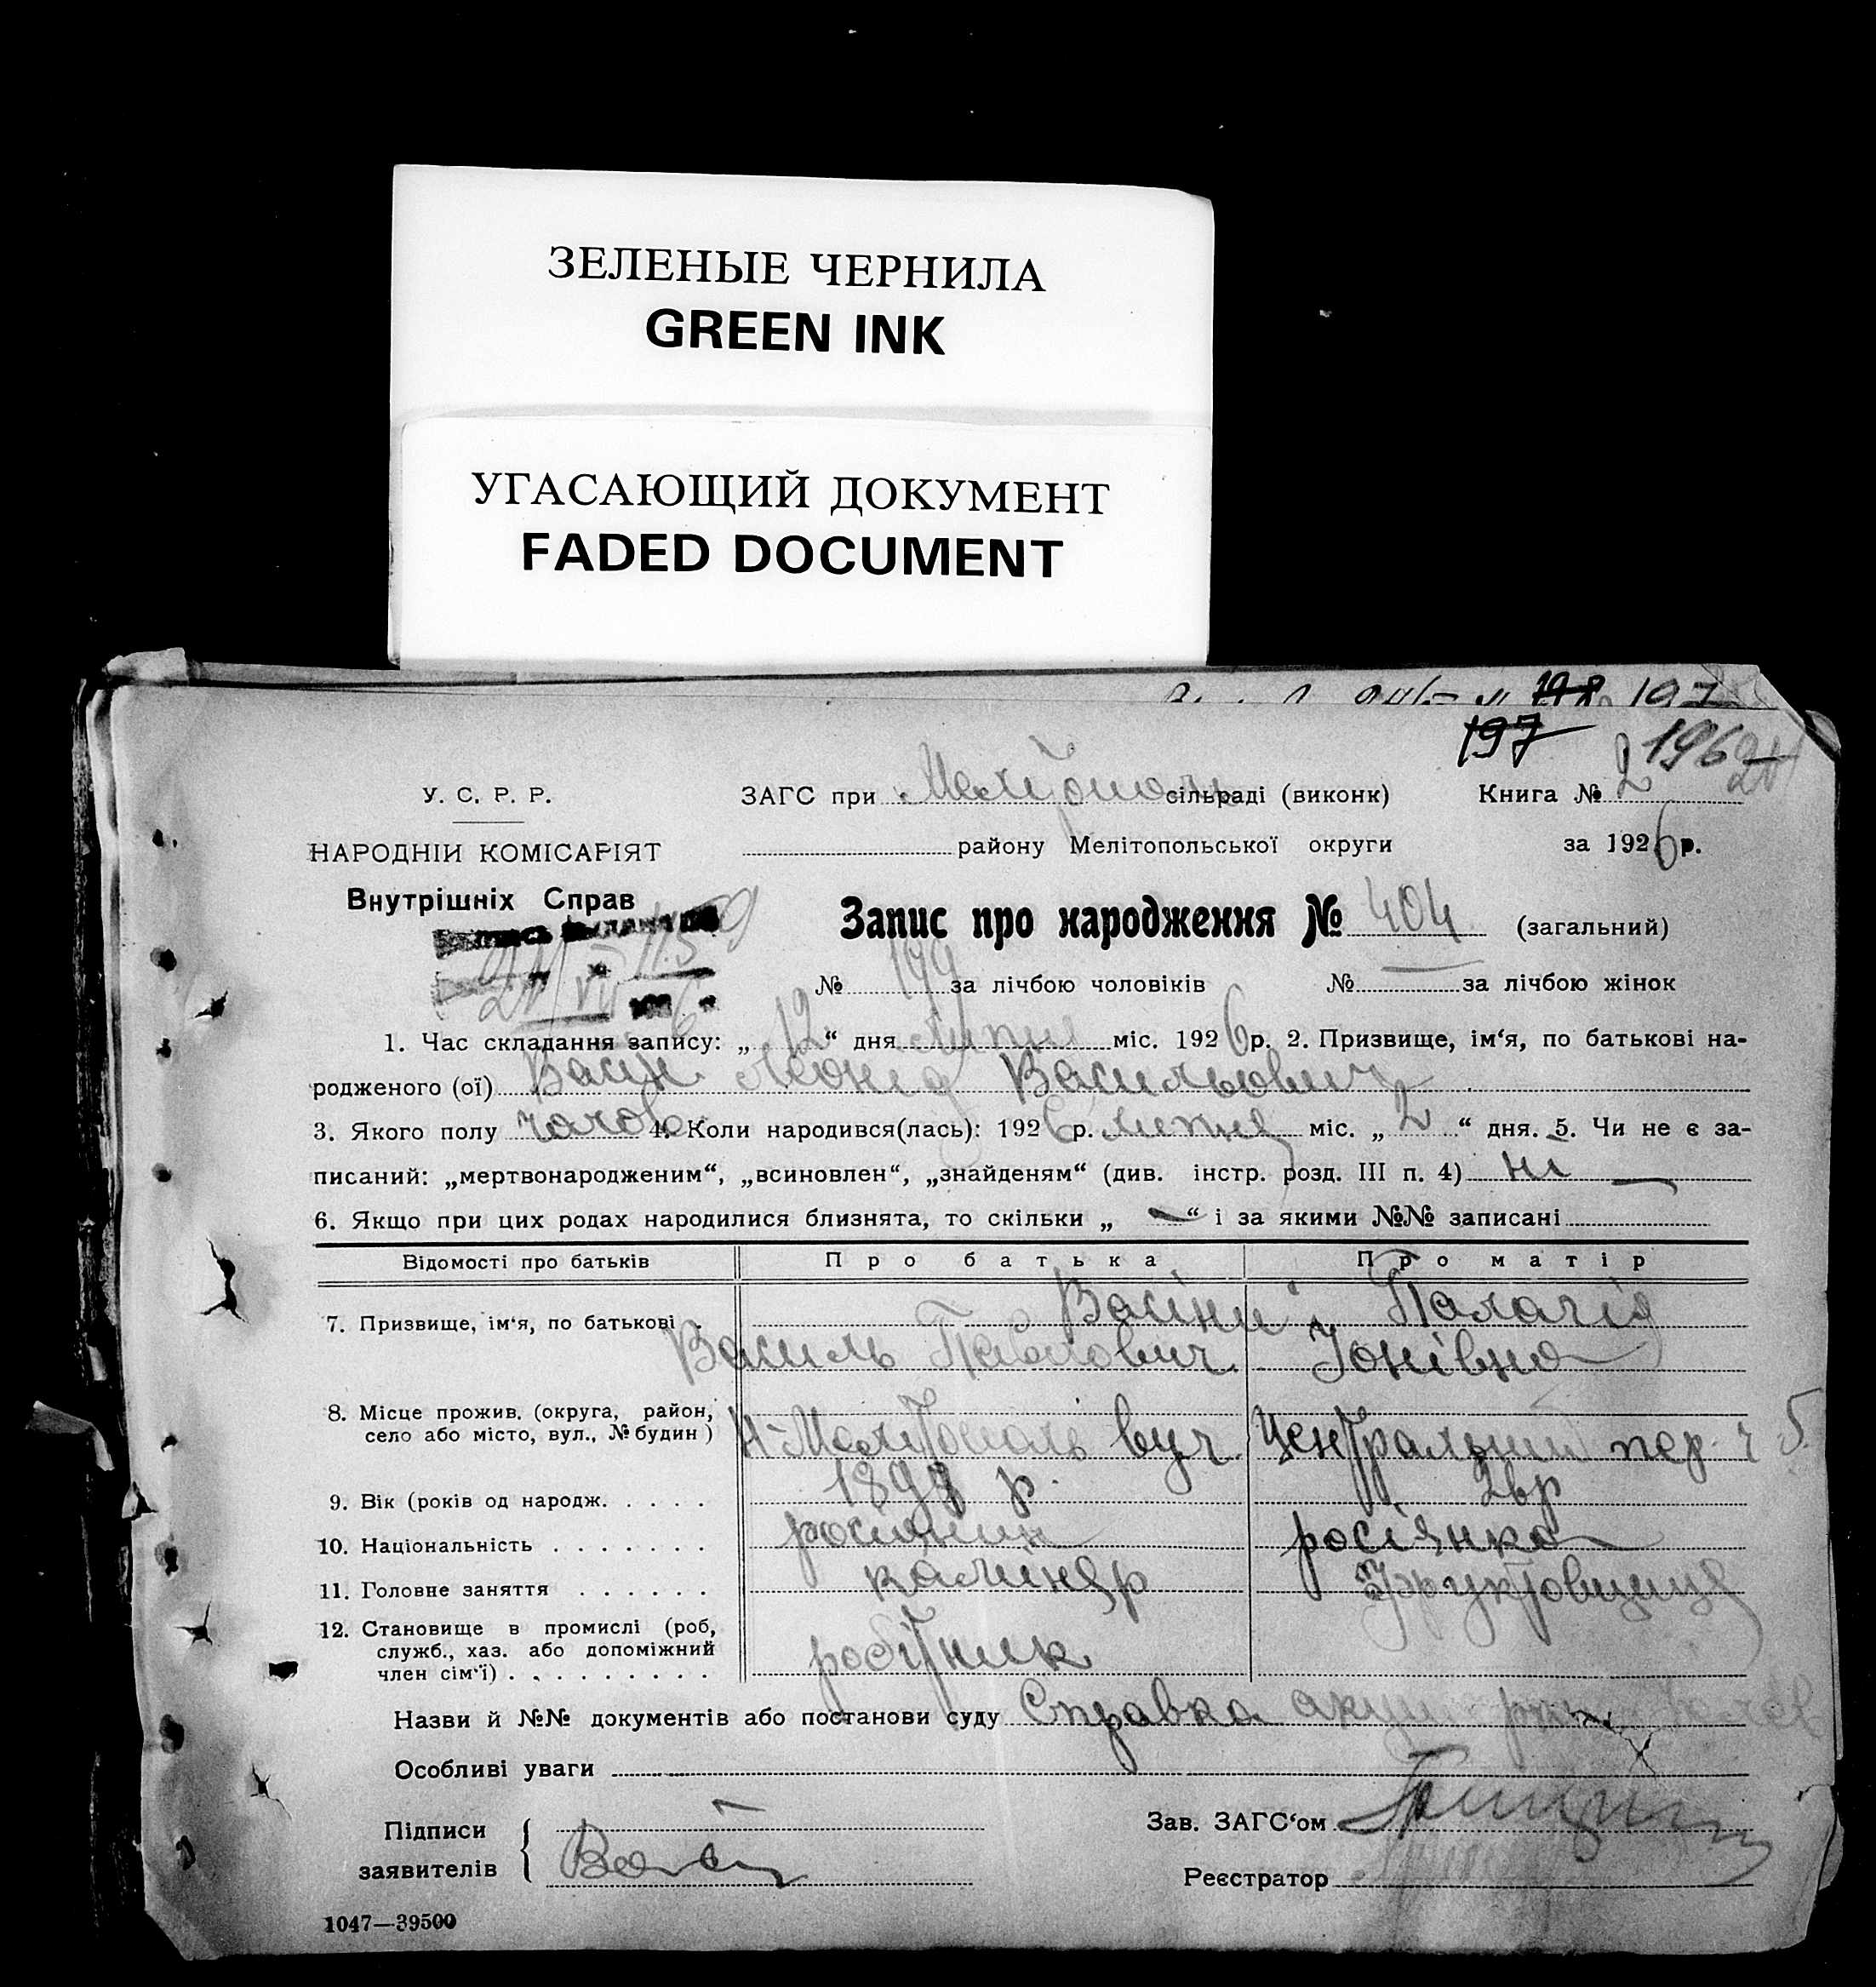 ЗЕЛЕНЫЕ ЧЕРНИЛА
GREEN INK
УГАСАЮЩИЙ ДОКУМЕНТ
FADED DOCUMENT
198 197
197 196
У. С. Р. Р. ЗАГС при Мелітополь сільраді (виконк) Книга № 2
НАРОДНІЙ КОМІСАРІЯТ району Мелітопольської округи за 1926 р.
Внутрішніх Справ
Запис про народження № 404 (загальний)
№ 199 за лічбою чоловіків № за лічбою жінок
1. Час складання запису: „ 12 “ дня липня міс. 1926 р. 2. Призвище, ім‘я, по батькові на-
родженого (ої) Васін Леонід Васильович
3. Якого полу чолов 4. Коли народився(лась): 1926 р. липня міс. „ 2 “ дня. 5. Чи не є за-
писаний: „мертвонародженим“, „всиновлен“, „знайденям“ (див. інстр. розд. III п. 4) ні
6. Якщо при цих родах народилися близнята, то скільки „ — “ і за якими №№ записані
Відомості про батьків Про батька Про матір
7. Призвище, ім‘я, по батькові . Васіни Палагія
Василь Павлович Іонівна
8. Місце прожив. (округа, район,
село або місто, вул., № будин) Н-Мелітополь вул. Центральний пер. ч 5
9. Вік (років од народж. . . . . 189 р. 26р
10. Національність . . . . . . . росіянин росіянка
11. Головне заняття . . . . . . каминяр Фруктовщиця
12. Становище в промислі (роб,
служб., хаз. або допоміжний
член сім‘ї) . . . . . . . . . робітник
Назви й №№ документів або постанови суду Справка
Особливі уваги
Підписи Зав. ЗАГС‘ом
заявителів Васін
Реєстратор
1047—39500